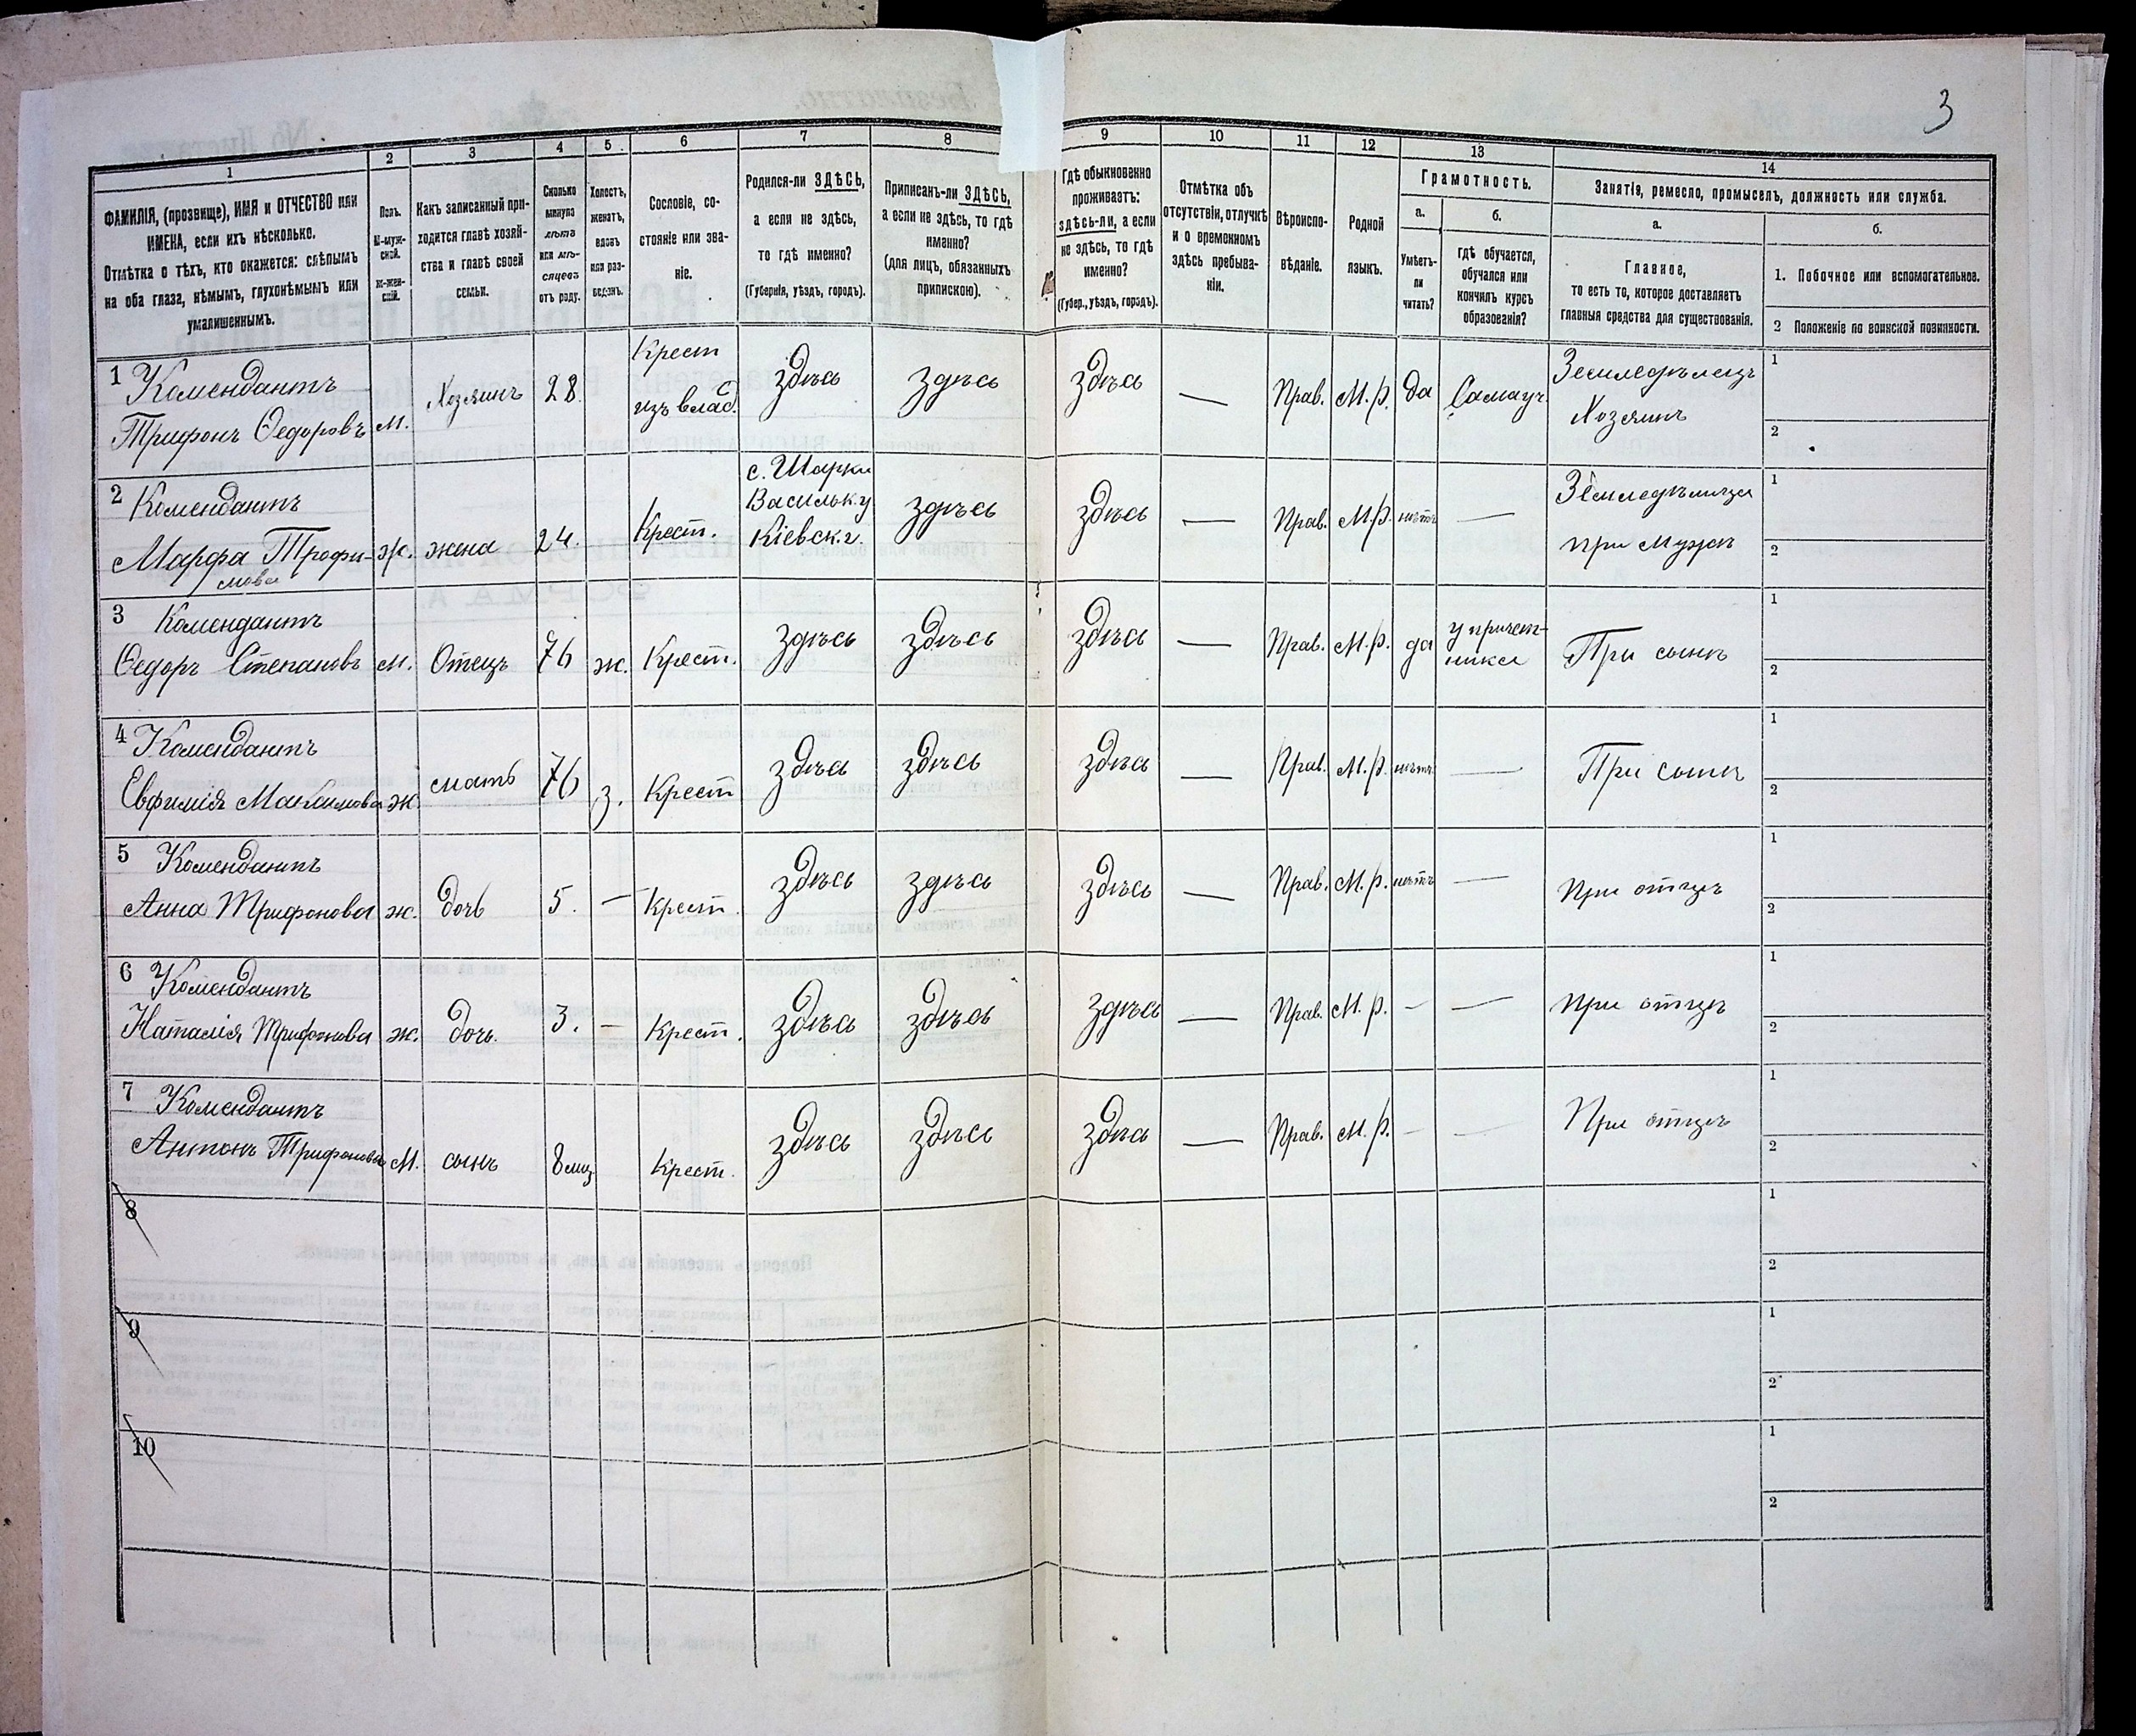 3
1
2
3
4
5
6
7
8
9
10
11
12
13
14
ФАМИЛІЯ, (прозвище), ИМЯ и ОТЧЕСТВО или
ИМЕНА, если ихъ нѣсколько.
Отмѣтка о тѣхъ, кто окажется: слѣпымъ
на оба глаза, нѣмымъ, глухонѣмымъ или
умалишеннымъ.
Полъ.
М-муж-
ской.
Ж-жен-
скій.
Какъ записанный при-
ходится главѣ хозяй-
ства и главѣ своей
семьи.
Сколько
минуло
лѣтъ
или мѣ-
сяцевъ
отъ роду.
Холостъ,
женатъ,
вдовъ
или раз-
веденъ.
Сословіе, со-
стояніе или зва-
ніе.
Родился-ли ЗДѢСЬ,
а если не здѣсь,
то гдѣ именно?
(Губернія, уѣздъ, городъ).
Приписанъ-ли ЗДѢСЬ,
а если не здѣсь, то гдѣ
именно?
(для лицъ, обязанныхъ
припискою).
Гдѣ обыкновенно
проживаетъ:
здѣсь-ли, а если
не здѣсь, то гдѣ
именно?
(Губер., уѣздъ, городъ).
Отмѣтка объ
отсутствіи, отлучкѣ
и о временномъ
здѣсь пребыва-
ніи.
Вѣроиспо-
вѣданіе.
Родной
языкъ.
Грамотность.
а.
б.
Умѣетъ-
ли
читать?
Гдѣ обучается,
обучался или
кончилъ курсъ
образованія?
Занятіе, ремесло, промыселъ, должность или служба.
а.
б.
Главное,
то есть то, которое доставляетъ
главныя средства для существованія.
1. Побочное или вспомогательное.
2 Положеніе по воинской повинности.
1 Комендантъ
Трифонъ Ѳедоровъ
м.
Хозяинъ
28.
Крест
изъ влад.
здѣсь
здѣсь
здѣсь
—
Прав.
М.р.
да
Самоуч.
Земледѣлецъ
Хозяинъ
1
2
2 Комендантъ
Марфа Трофи-
мова
ж.
жена
24.
Крест.
с. Шарки
Васильк. у
Кіевск. г.
здѣсь
здѣсь
—
Прав.
М.р.
нѣтъ
—
Земледѣлица
при мужѣ
1
2
3 Комендантъ
Ѳедоръ Степановъ
м.
Отецъ
76
ж.
Крест.
здѣсь
здѣсь
здѣсь
—
Прав.
М.р.
да
у причет-
ника
При сынѣ
1
2
4 Комендантъ
Евфимія Максимова
ж
мать
76
з.
Крест
здѣсь
здѣсь
здѣсь
—
Прав.
М.р.
нѣтъ
—
При сынѣ
1
2
5 Комендантъ
Анна Трифонова
ж.
дочь
5.
—
Крест.
здѣсь
здѣсь
здѣсь
—
Прав.
М.р.
нѣтъ
—
При отцѣ
1
2
6 Комендантъ
Наталія Трифонова
ж.
дочь.
3.
—
Крест.
здѣсь
здѣсь
здѣсь
—
Прав.
М.р.
—
—
При отцѣ
1
2
7 Комендантъ
Антонъ Трифоновъ
М.
сынъ
8 мц
Крест.
здѣсь
здѣсь
здѣсь
—
Прав.
М.р.
—
—
При отцѣ
1
2
8
1
2
9
1
2
10
1
2